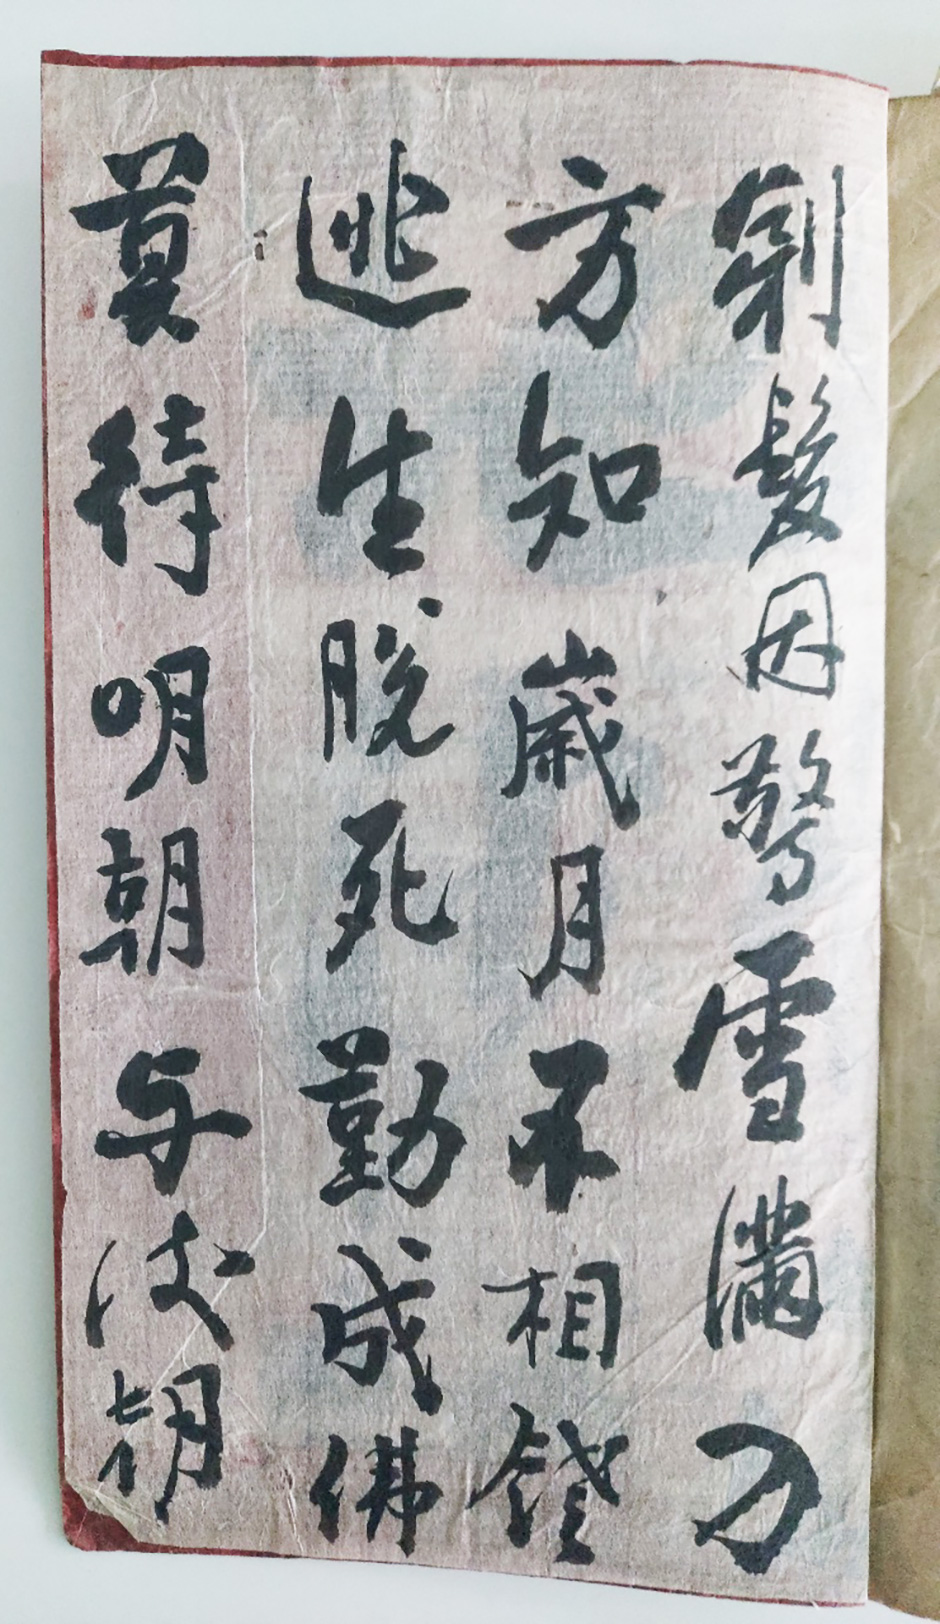 剃髮因驚雪滿刀
方知歲月不相饒
逃生脫死勤成佛
莫待明朝与後朝